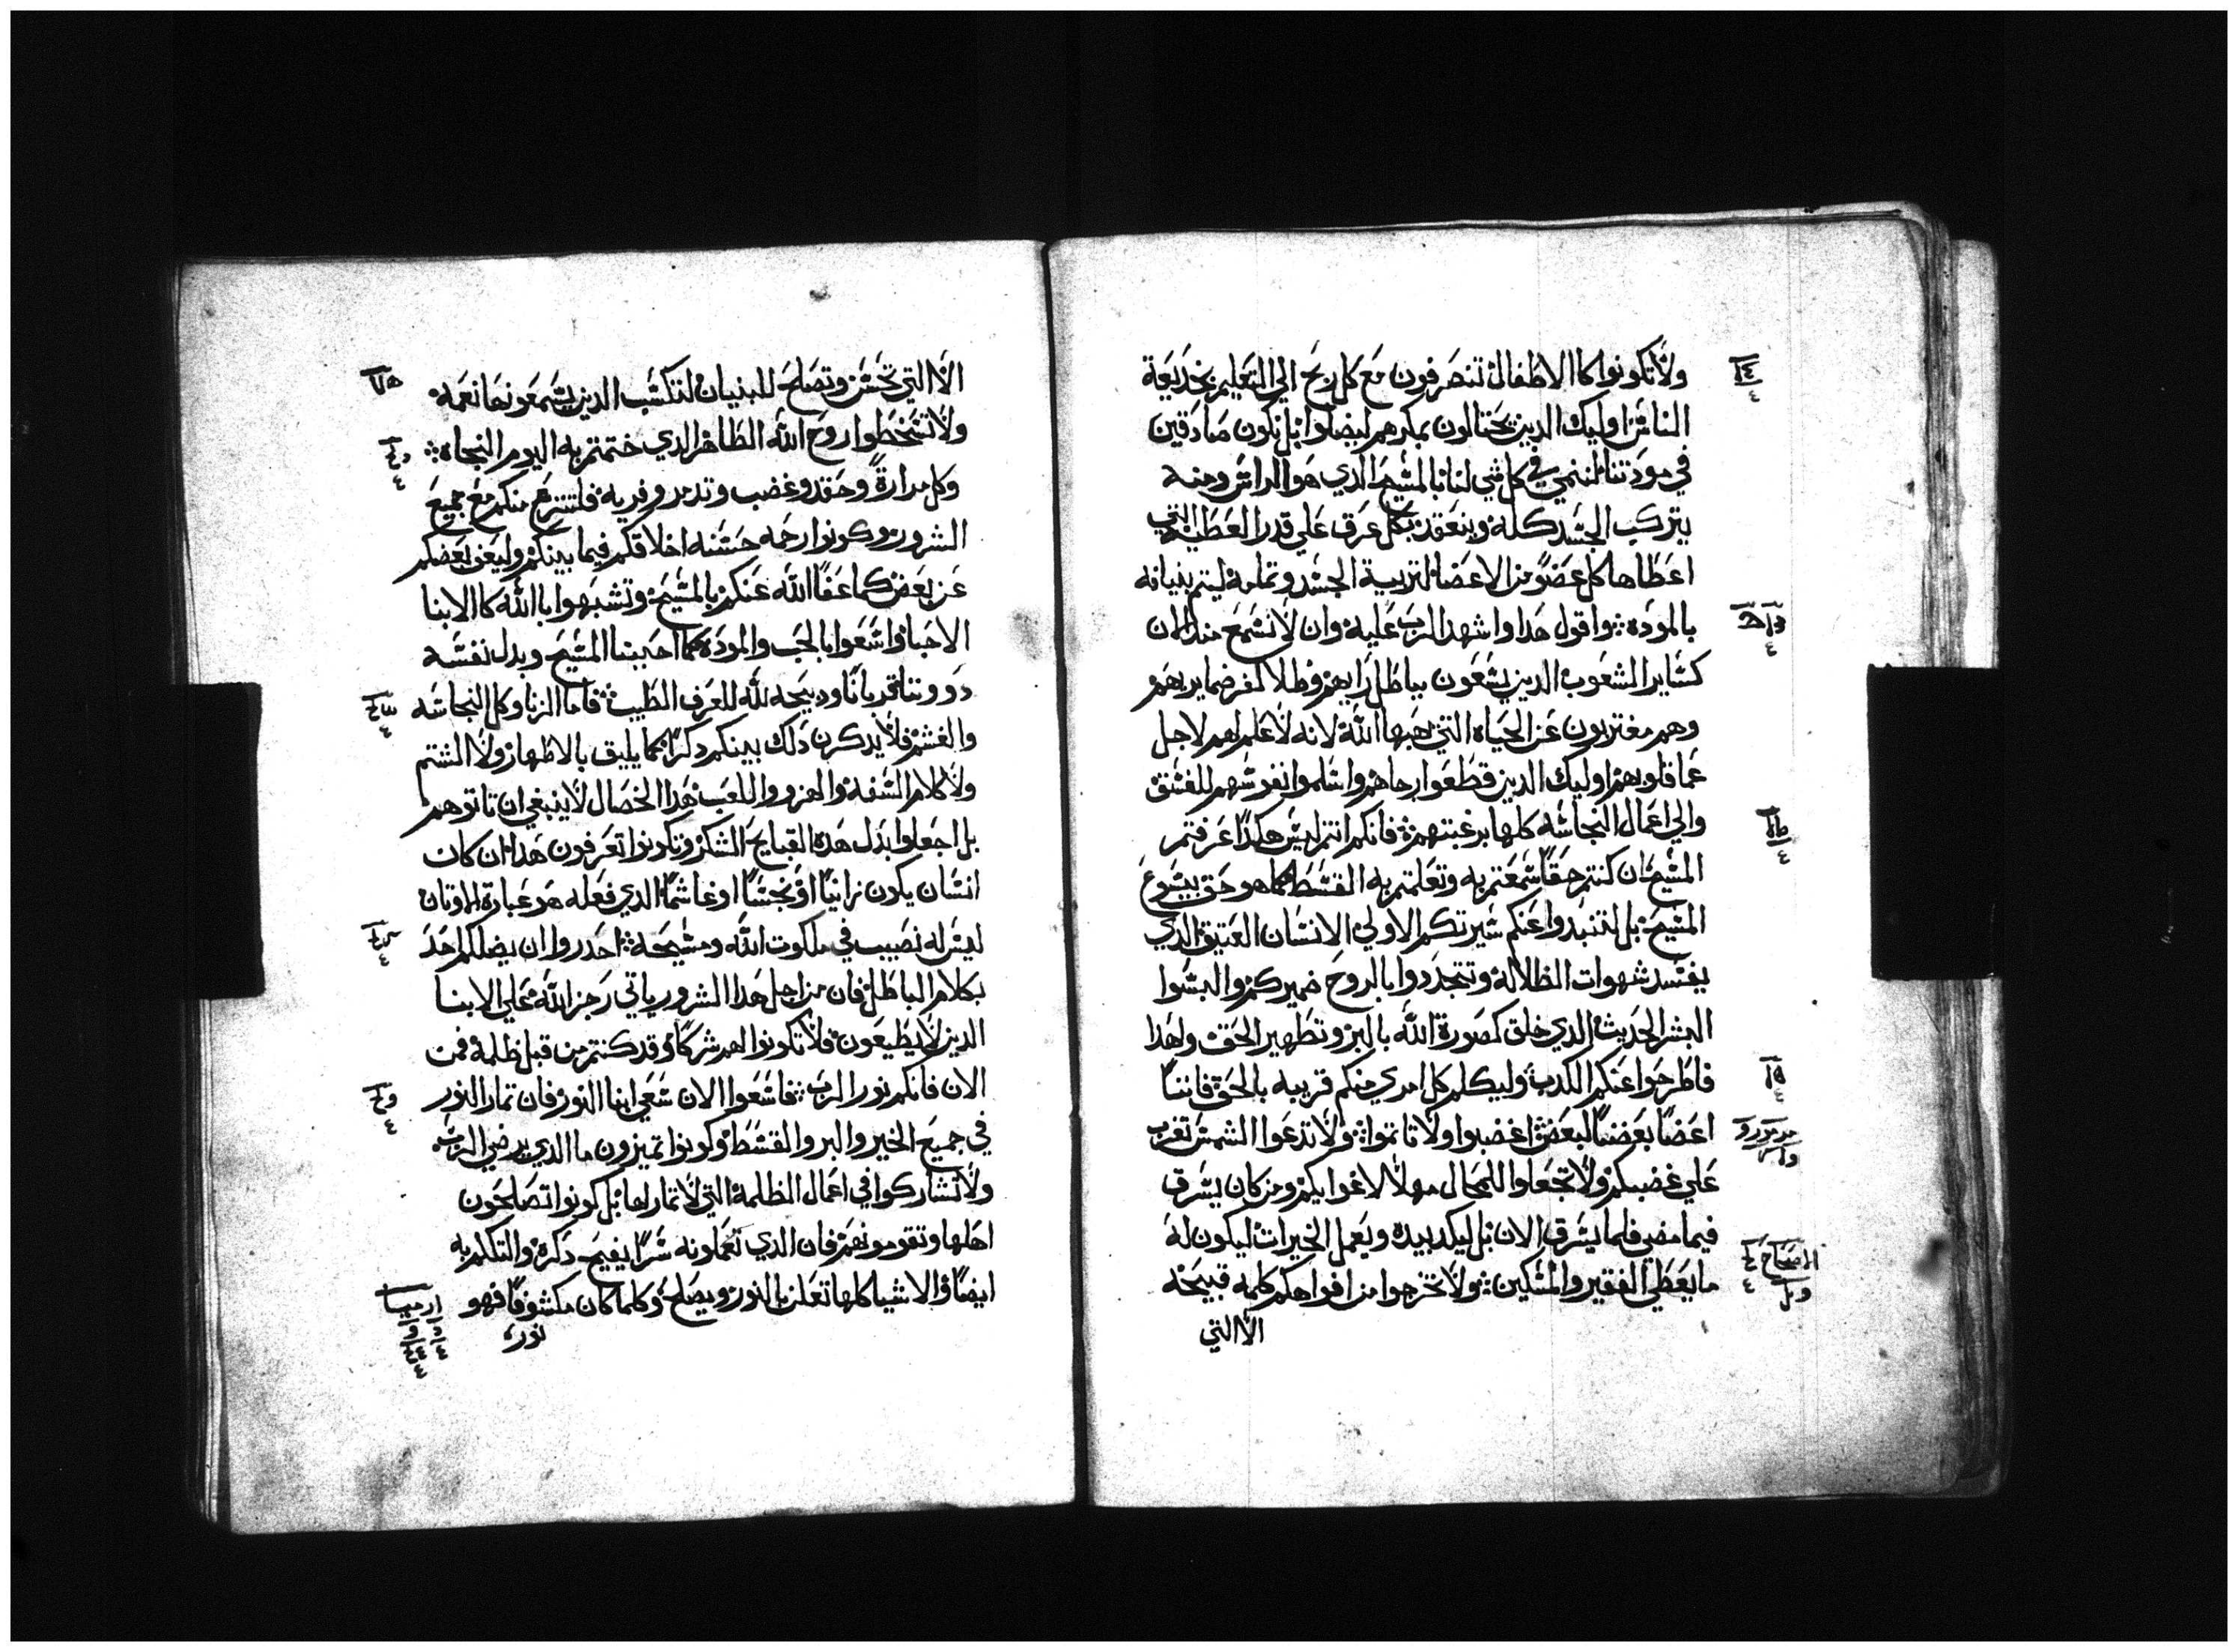 ولا تكونوا كاالاطفال تنصرفون مع كل ريح الي التعليم بخديعة
الناس اوليك الدين يحتالون بمكرهم ليضلوا بل نكون صادقين
في مودتنا لننمي في كل شي لنا بالمسيح الدي هو الراس ومنه
يتركب الجسد كله وينعقد بكل عرق علي قدر العطيه التي
اعطاها كل عضو من الاعضا لتربية الجسد وتمامه ليتم بنيانه
بالموده واقول هدا واشهد الرب عليه وان لا نسمع مند الان
كساير الشعوب الدين يسعون بباطل رايهم وظلام ضمايرهم
وهم مغتربون عن الحياه التي وهبها الله لانه لا علم لهم لاجل
عما قلوبهم اوليك الدين قطعوا رجاهم واسلموا نفوسهم للفسق
والي اعمال النجاسه كلها برغبتهم فانكم انتم ليس هكدا عرفتم
المسيح ان كنتم حقا سمعتم به وتعلمتم به القسط كما هو حق بيسوع
المسيح بل لتنبدوا عنكم سيرتكم الاولي الانسان العتيق الدي
يفسد شهوات الظلاله وتتجددوا بالروح ضميركم والبسوا
البشر الحديث الدي خلق كصورة الله بالبر وتطهير الحق ولهدا
فاطرحوا عنكم الكدب وليكلم كل امري منكم قريبه بالحق فاننا
اعضا بعضنا لبعض اغضبوا ولا تاتموا ولا تدعوا الشمس تغرب
علي غضبكم ولا تجعلوا للمحال مهلا لاغوايكم ومن كان يسرق
فيما مضي فلما يسرق الان بل ليكد بيده ويعمل الخيرات ليكون له
ما يعطي الفقير والمسكين ولا تخرجوا من افواهكم كلمه قبيحه
الا التي
الا التي تحسن وتصلح للبنيان لتكسب الدين يسمعونها نعمه
ولا تسخطوا روح الله الطاهر الدي ختمتم به اليوم النجاه
وكل مرارة وحقد وغضب وتدمر وفريه فلتنزع منكم مع جميع
الشرور وكونوا رحمه حسنه اخلاقكم فيما بينكم وليعن بعضكم
عن بعض كما عفا الله عنكم بالمسيح وتشبهوا باالله كاالابنا
الاحبا واسعوا بالحب والموده كما احبنا المسيح وبدل نفسه
دووننا قربانا ودبيحه لله للعرف الطيب فاما الزنا وكل النجاسه
والغشم فلا يدكرن دلك بينكم دكرا كما يليق بالاطهار ولا الشتم
ولا كلام السفه والهزو واللعب هدا الخصال لا ينبغي ان تاتوهم
بل اجعلوا بدل هده القبايح الشكر وتكونوا تعرفون هدا ان كان
انسان يكون زانيا او نجسا او غاشما الدي فعله هو عبارة الاوتان
ليس له نصيب في ملكوت الله ومسيحه احدروا ان يضلكم احد
بكلام الباطل فان من اجل هدا الشرور ياتي رجز الله علي الابنا
الدين لا يطيعون فلا تكونوا لهم شركا وقد كنتم من قبل ظلمه فمن
الان فانكم نور الرب فاسعوا الان سعي ابنا النور فان تمار النور
في جميع الخير والبر والقسط وكونوا تميزون ما الدي يرضي الرب
ولا تشاركوا في اعمال الظلمه التي لا تمار لها بل كونوا تصلحون
اهلها وتقومونهم فان الدي تعملونه سرا يقبح دكره والتكلم به
ايضا والاشيا كلها تعلن بالنور ويصلح وكلما كان مكشوفا فهو
نور